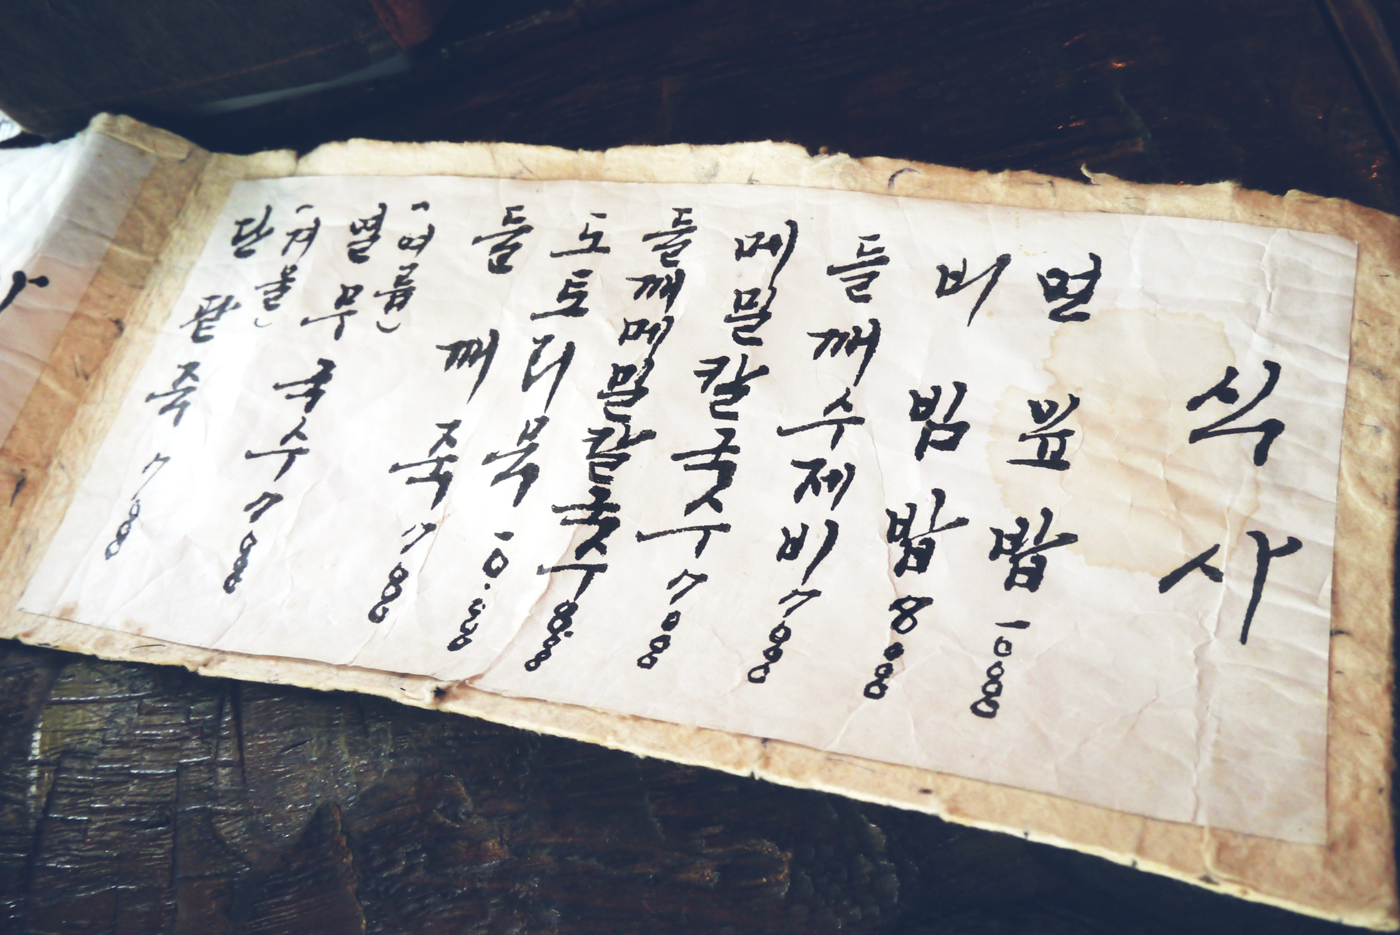 식사
연잎밥 10000
비빔밥 8000
들깨수제비 7000
메밀칼국수 7000
들깨메밀칼국수 8000
도토리묵 10.000
들깨죽 7000
(여름)
열무국수 7000
(겨울)
단팥죽 7000